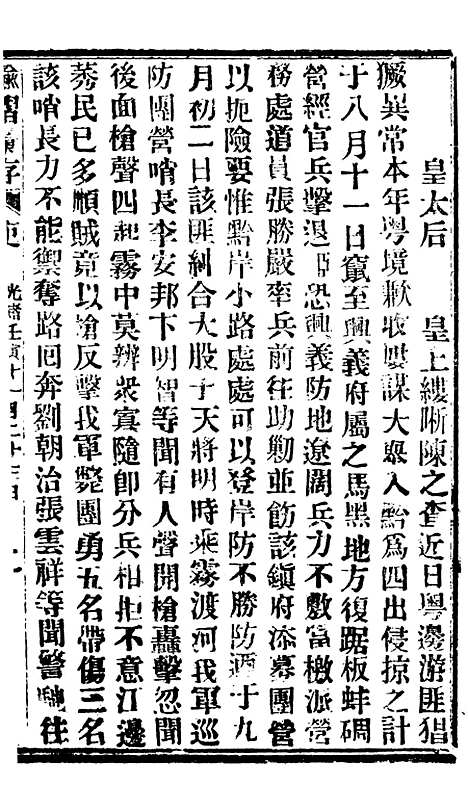 皇太后　皇上縷晰陳之查近日粵邊游匪猖
獗異常本年粵境歉收嘍謀大舉入黔為四出侵掠之計
于八月十一日竄至興義府屬之馬黑地方復踞板蚌碉
營經官兵擊退 恐興義防地遼闊兵力不敷當檄派營
務處道員張勝嚴率兵前往助剿並飭該鎮府添募團營
以扼險要惟黔岸小路處處可以登岸防不勝防 于九
月初二日該匪糾合大股于天將明時乘霧渡河我軍巡
防團營哨長李安邦卞明智等聞有人聲開槍轟擊忽聞
後面槍聲四起霧中莫辨衆寡隨卽分兵相拒不意江邊
莠民已多順賊竟以槍反擊我軍斃團勇五名帶傷三名
該哨長力不能禦奪路回奔劉朝治張雲祥等聞警馳往
諭摺彙存 光緒壬寅十一月二十三日